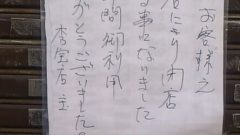 お客様え
店にきり閉店
る事になりました
間御利用
がとうございました
店主